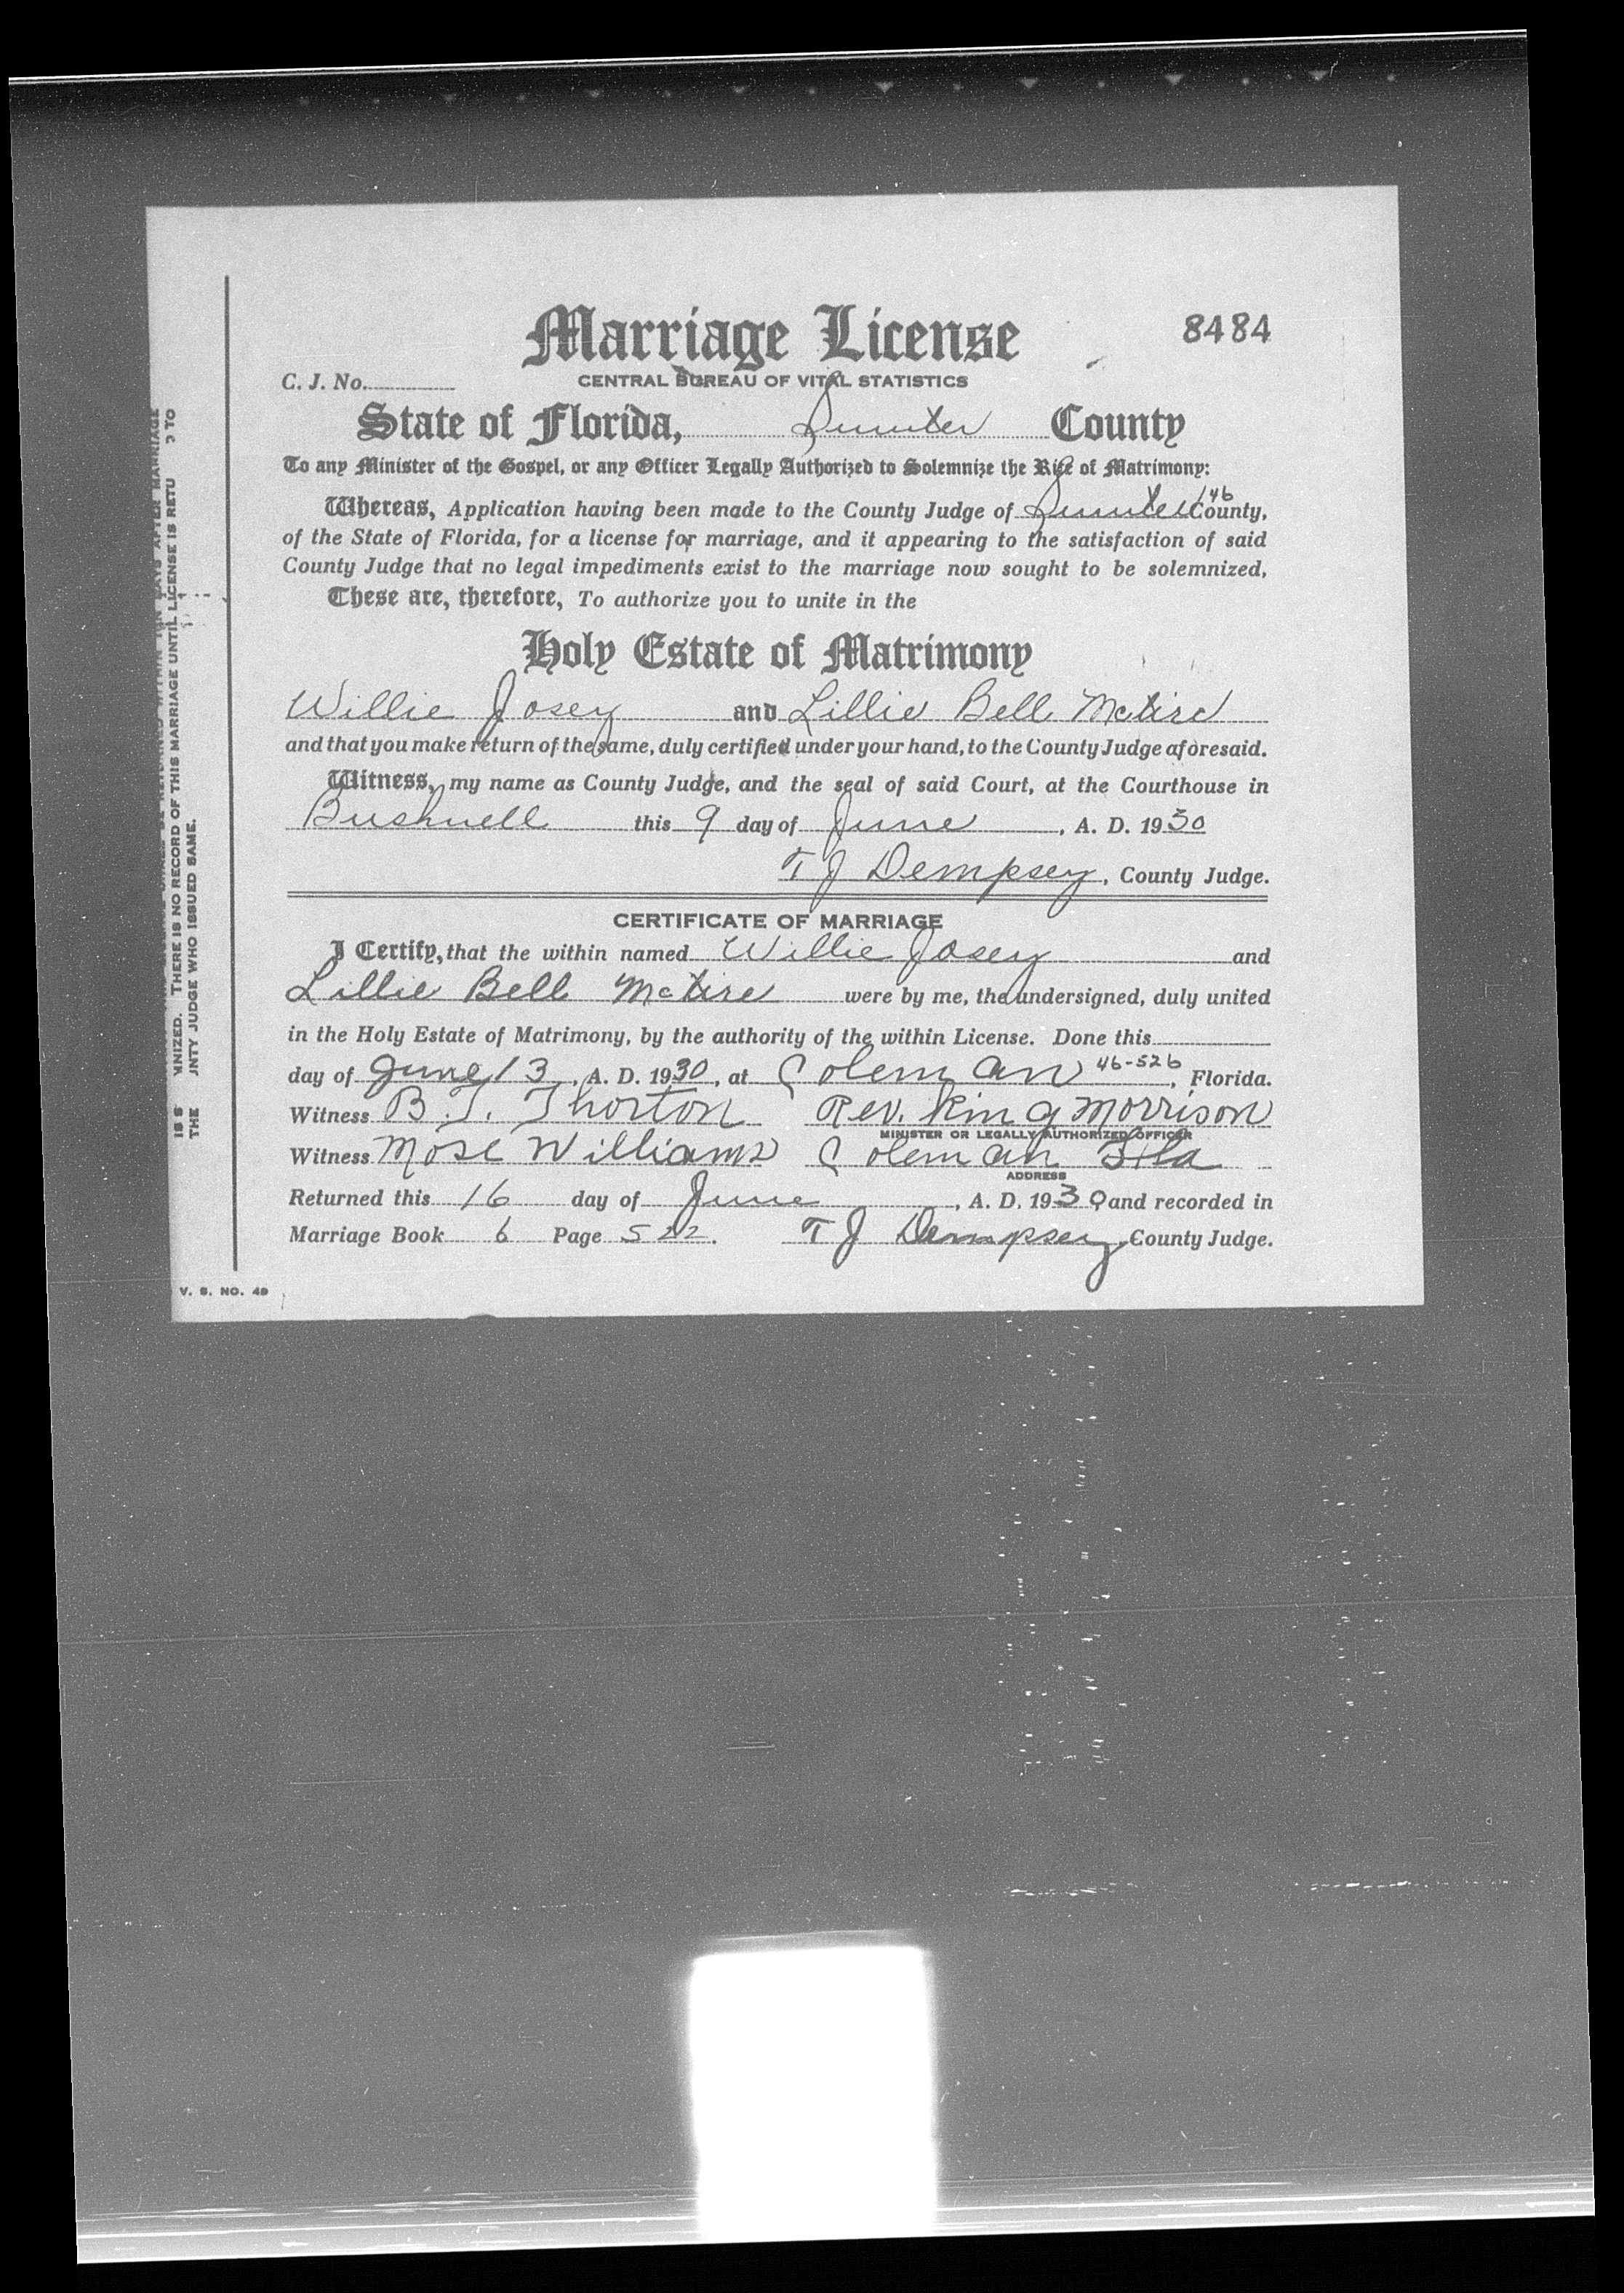 Marriage License 8484
C. J. No.
CENTRAL BUREAU OF VITAL STATISTICS
State of Florida, Sumter County
To any Minister of the Gospel, or any Officer Legally Authorized to Solemnize the Rite of Matrimony:
Whereas, Application having been made to the County Judge of Sumter 46 County,
of the State of Florida, for a license for marriage, and it appearing to the satisfaction of said
County Judge that no legal impediments exist to the marriage now sought to be solemnized,
These are, therefore, To authorize you to unite in the
Holy Estate of Matrimony
Willie Josey and Lillie Bell
and that you make return of the same, duly certified under your hand, to the County Judge aforesaid.
Witness, my name as County Judge, and the seal of said Court, at the Courthouse in
Bushnell this 9 day of June, A. D. 1930
T J Dempsey, County Judge.
CERTIFICATE OF MARRIAGE
I Certify, that the within named Willie Josey and
Lillie Bell McTire were by me, the undersigned, duly united
in the Holy Estate of Matrimony, by the authority of the within License. Done this
day of June 13, A. D. 1930, at Coleman 46-526, Florida.
Witness B. T. Thorton Rev. King Morrison
MINISTER OR LEGALLY AUTHORIZED OFFICER
Witness Mose Williams Coleman Fla
ADDRESS
Returned this 16 day of June, A. D. 1930 and recorded in
Marriage Book 6 Page 522. T J Dempsey County Judge.
V. S. NO. 49
DAYS AFTER MARRIAGE
IS S MNIZED. THERE IS NO RECORD OF THIS MARRIAGE UNTIL LICENSE IS RETU TO
THE UNTY JUDGE WHO ISSUED SAME.